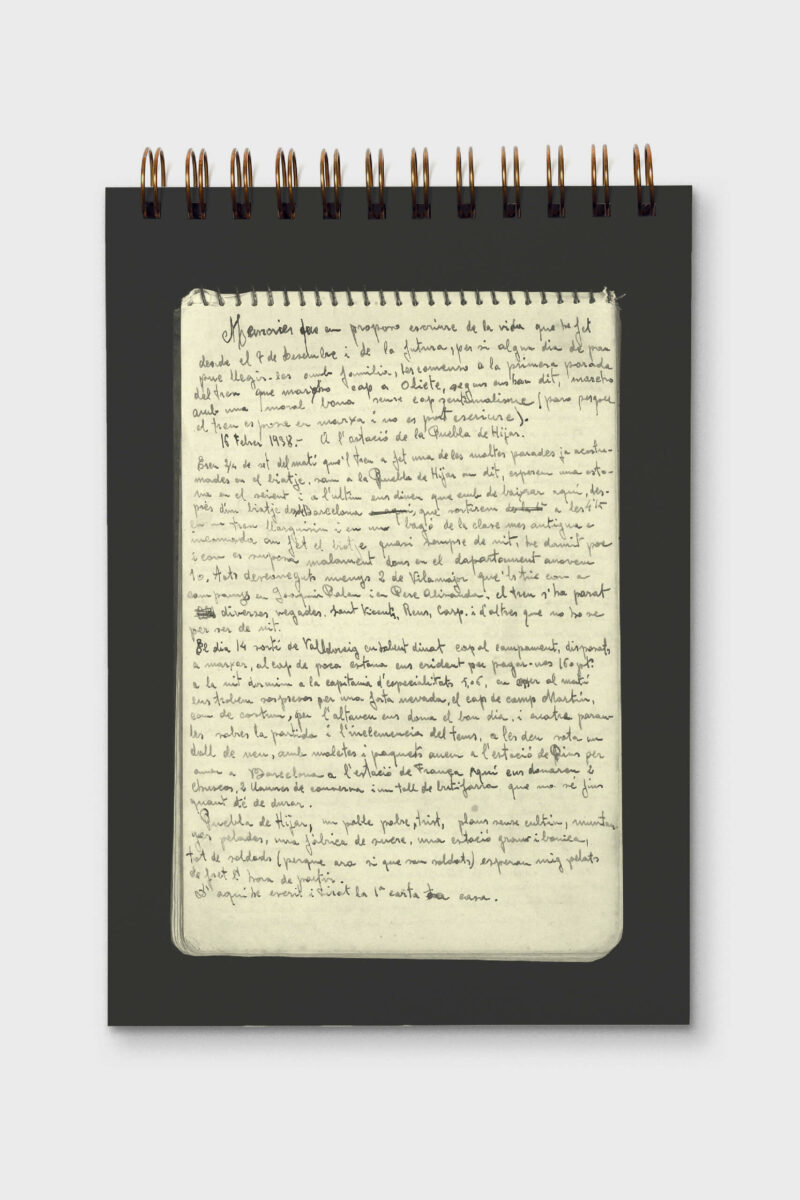 Memories que em proposo escriure de la vida que he fet
desde el 7 de Desembre i de la futura, per si algun dia de pau
puc llegir-les amb familia, les comenso a la primera parada
del tren que marxo cap a Oliete, segons ens han dit, marxo
amb una moral bona sense cap sentimalisme (paro perque
el tren es posa en marxa i no es pot escriure).
16 Febrer 1938.- A l'estació de la Puebla de Hijar.
Eren 3/4 de set del matí que'l tren a fet una de les moltes parades ja acostu-
mades en el biatje, som a la Puebla de Hijar an dit, esperem una esto-
na en el seient i a l'ultim ens diuen que em de baixar aquí, des-
près d'un biatje des Barcelona que sortirem a les 4'15
en un tren llarguisim i en un bagó de la clase mes antigua e
incomoda em fet el biatje quasi sempre de nit, he dormit poc
i com es suposa malament dons en el dapartament anavem
10. Tots desconeguts menys 2 de Vilamajor que'ls tinc com a
companys en Joaquin i en Pere el tren s'ha parat
diverses vegades. Sant Vicents, Reus, Carp. i d'altres que no ho se
per ser de nit.
El dia 14 sortí de Valldoreig en habent dinat cap al campament, disposats
a marxar, al cap de poca estona ens criden per pagar-nos 160 pts.
a la nit dormim a la capitania d'especialitats 506, en al matí
ens trobem sorpresos per una forta nevada, el cap de camp Martín,
com de costum, per l'altaveu ens dona el bon dia i quatre parau-
les sobres la partida i l'inclemencia del tems, a les deu sota un
doll de neu, amb maletes i paquets anem a l'estació de Pins per
anar a Barcelona a l'estació de França. Aquí ens donaren 2
chuscos, 2 llaunes de conserva i un tall de butifarra que no sé fins
quant té de durar.
Puebla de Hijar, un poble pobre, trist, plans sense cultiu, muntan-
yes pelades, una fàbrica de sucre, una estació gran i bonica,
tot de soldads (perque ara si que som soldats) esperan mig pelats
de fret l'hora de partir.
D'aquí he escrit i tirat la 1ª carta a casa.